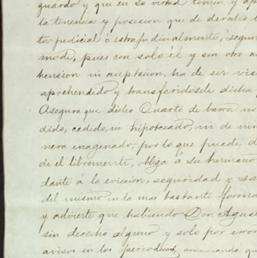 guardo y que en su virtud tomen y ap
la tenencia y posesion que de derecho te
ta judicial ó extrajudicialmente, segun
mode, pues con solo él y sin otro a
hension ni aceptacion, ha de ser vis
aprehendido y transferidosele dicha p
Asegura que dicho Cuarto de
dido, cedido, ni hipotecado, ni de nin
nera enagenado, por lo que puede d
de él libremente, obliga á su hermano
dante á la eviccion, seguridad y
del mismo en la mas bastante forma
y advierte que habiendo Don Agus
sin derecho alguno y solo por error
avisos en los periodicos,